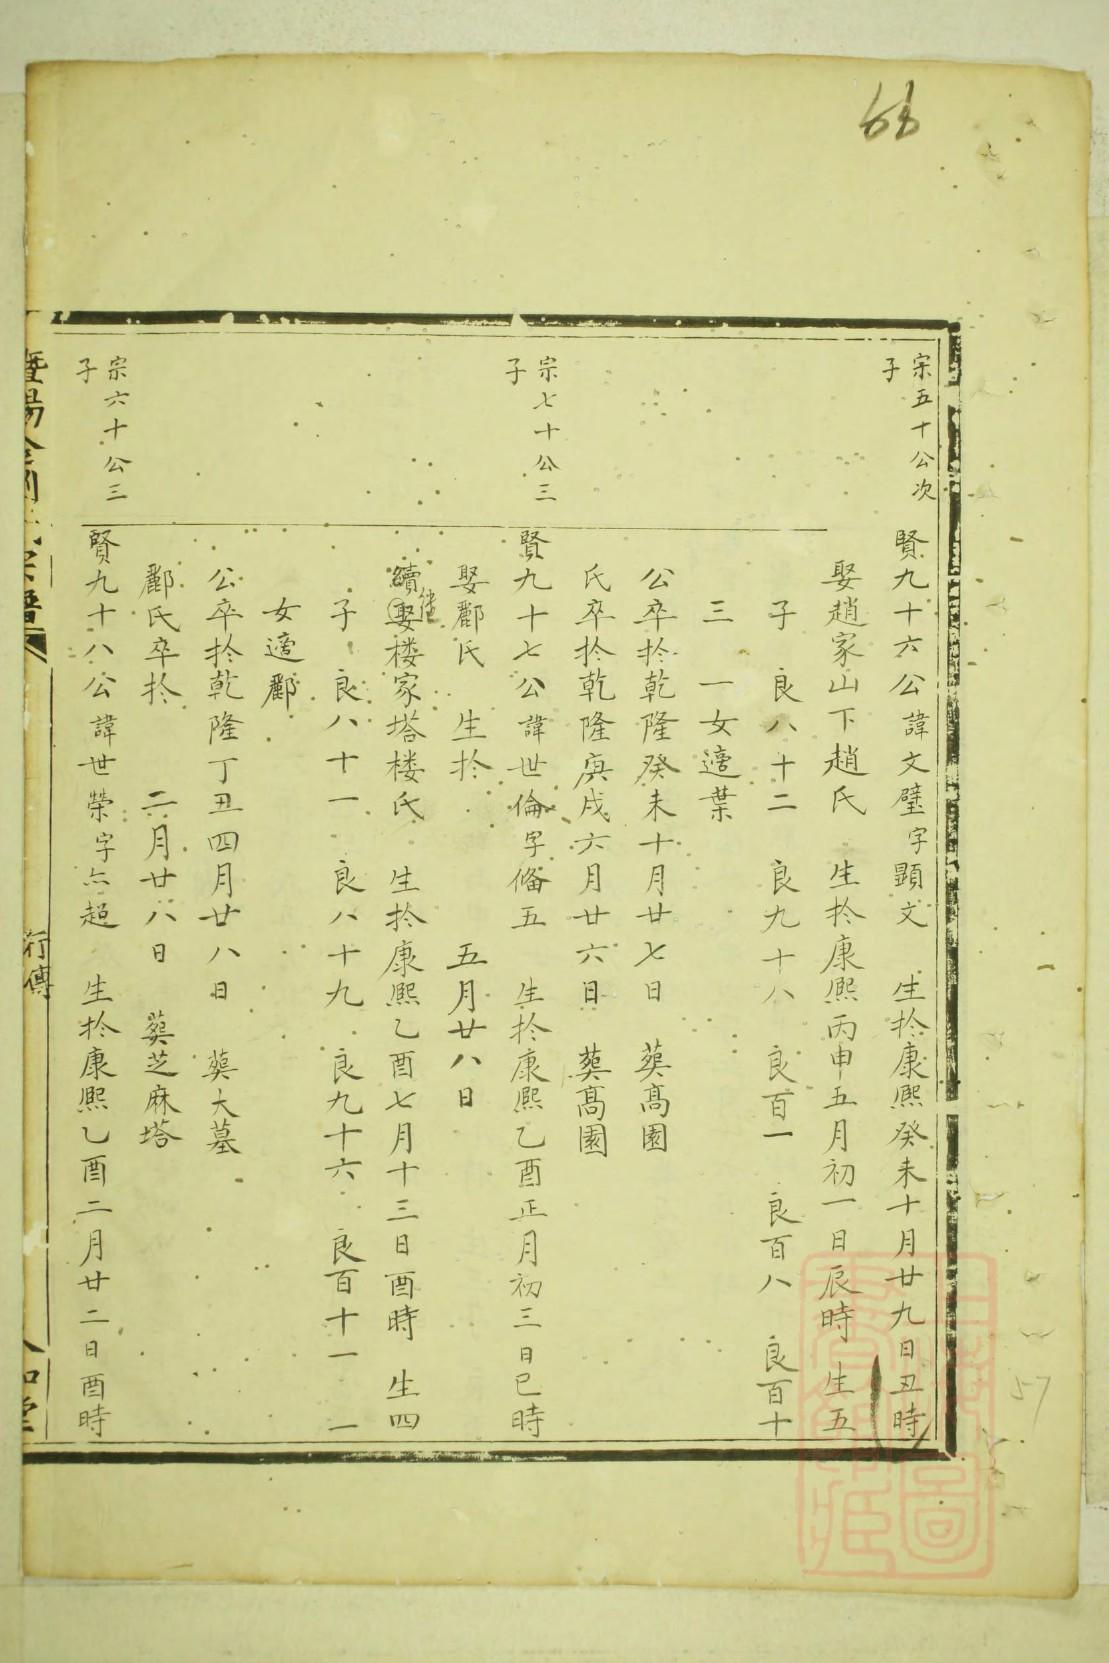 宗五十公次
子
賢九十六公諱文璧字顕文 生扵康熈癸未十月廿九日丑時
娶趙家山下趙氏 生扵康熈丙申五月初一日辰時 生五
子 良八十二 良九十八 良百一 良百八 良百十
三 一女適葉
公卒扵乾隆癸未十月廿七日 葬髙園
氏卒扵乾隆庚戌六月廿六日 葬髙園
宗七十公三
子
賢九十七公諱世倫字俻五 生扵康熈乙酉正月初三日巳時
娶酈氏 生扵 五月廿八日
續娶楼家塔楼氏 生扵康熈乙酉七月十三日酉時 生四
继
子 良八十一 良八十九 良九十六 良百十一 一
女適酈
公卒扵乾隆丁丑四月廿八日 葬大墓
酈氏卒扵 二月廿八日 葬芝麻塔
宗六十公三
子
賢九十八公諱世榮字亦超 生扵康熈乙酉二月廿二日酉時
暨陽
宗譜
行傳
堂
57